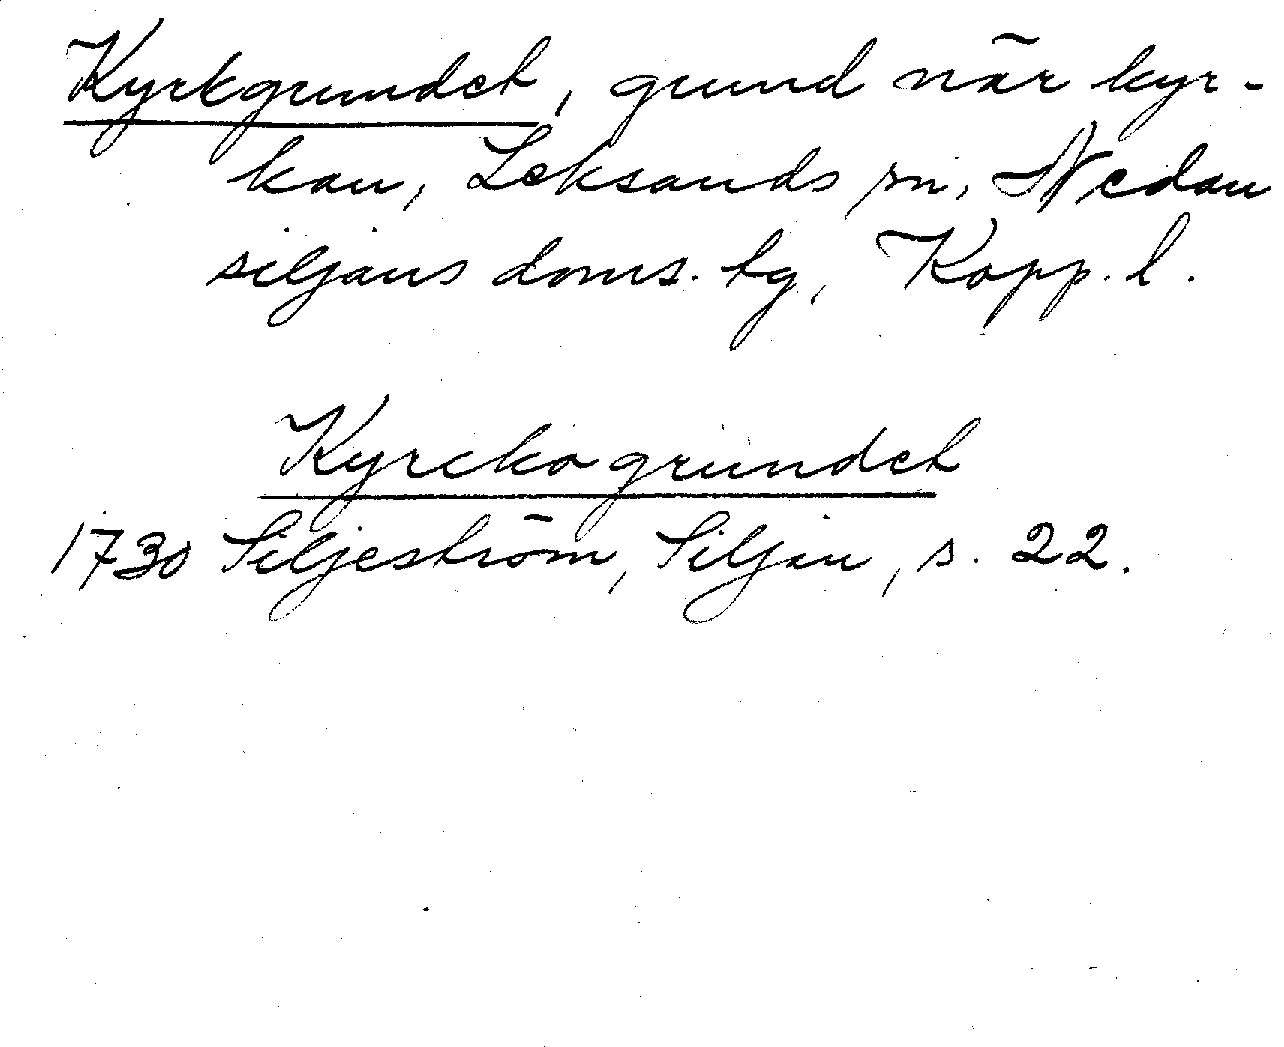 Kyrkgrundet, grund när kyr-
kan, Leksands sn, Nedan
siljans doms. tg, Kopp. l.
Kyrckogrundet
1730 Siljeström, Siljan, s. 22.